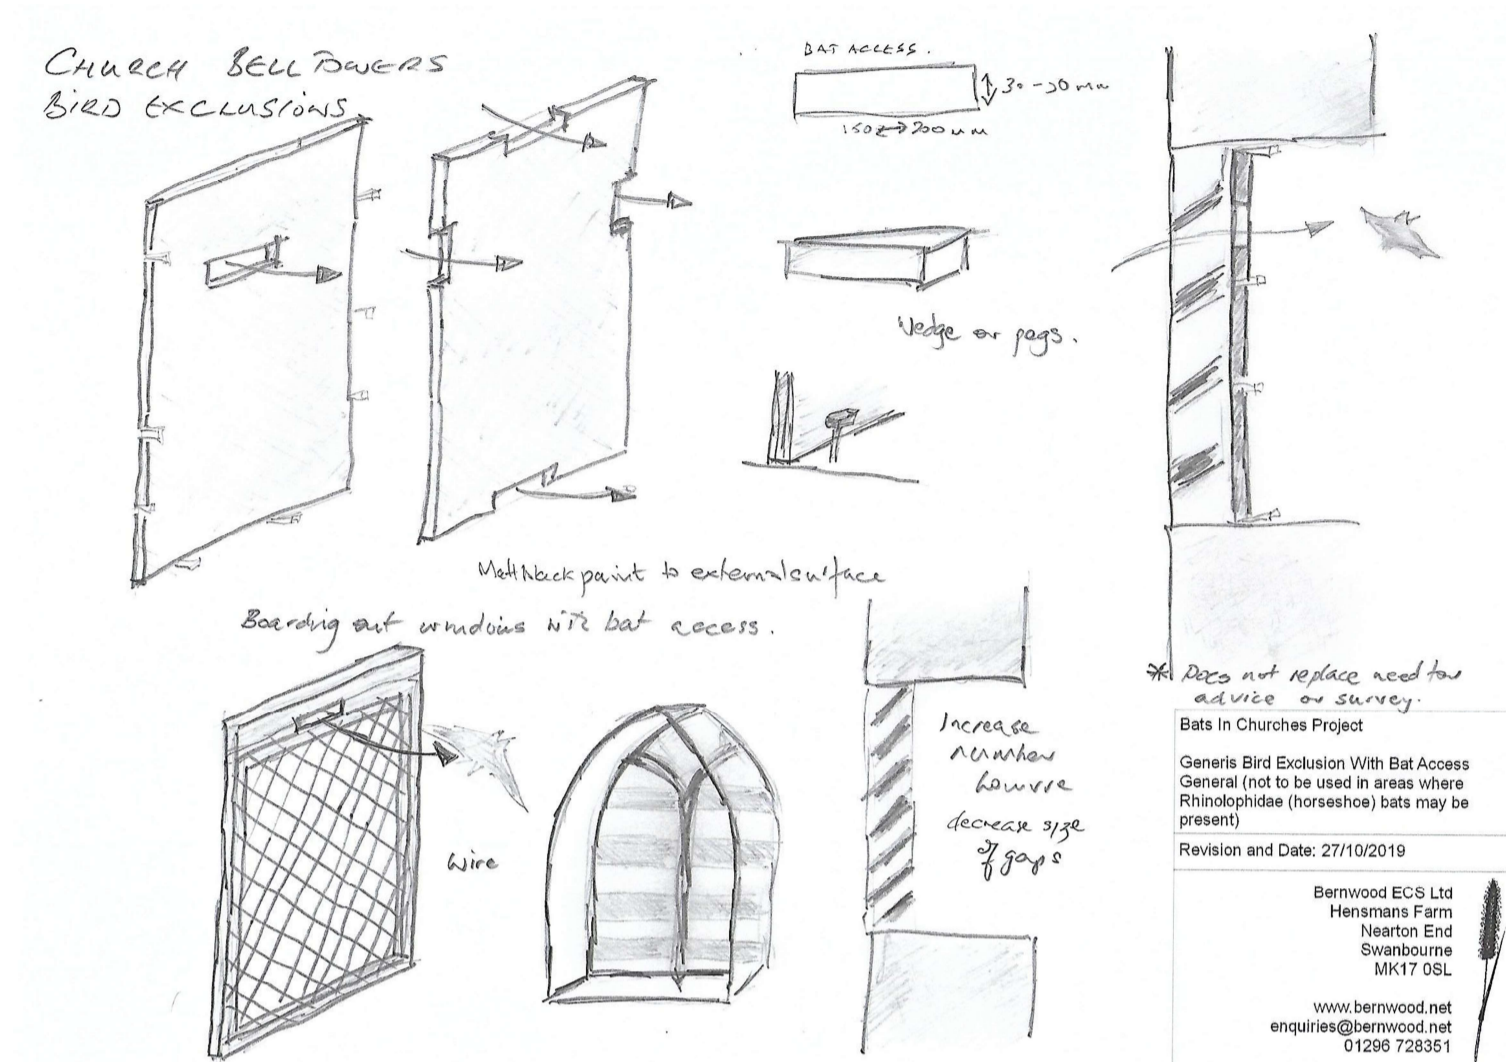 CHURCH BELL TOWERS
BIRD EXCLUSIONS
BAT ACCESS.
150 ↔ 200mm
Wedge or pegs.
Matt black paint to external surface
Boarding out windows with bat access.
Wire
Increase
number
Louvre
decrease size
of gaps
* Does not replace need for
advice or survey.
Bats In Churches Project
Generis Bird Exclusion With Bat Access
General (not to be used in areas where
Rhinolophidae (horseshoe) bats may be
present)
Revision and Date: 27/10/2019
Bernwood ECS Ltd
Hensmans Farm
Nearton End
Swanbourne
MK17 0SL
www.bernwood.net
enquiries@bernwood.net
01296 728351